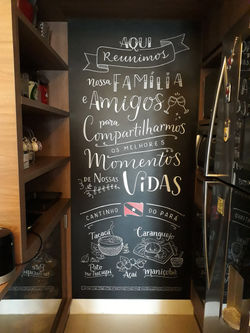 AQUI
Reunimos
nossa FAMÍLIA
e Amigos
para
Compartilharmos
OS MELHORES
Momentos
DE NOSSAS VIDAS
CANTINHO DO PARÁ
Tacacá Caranguejo
Pato no Tucupi Açaí Maniçoba